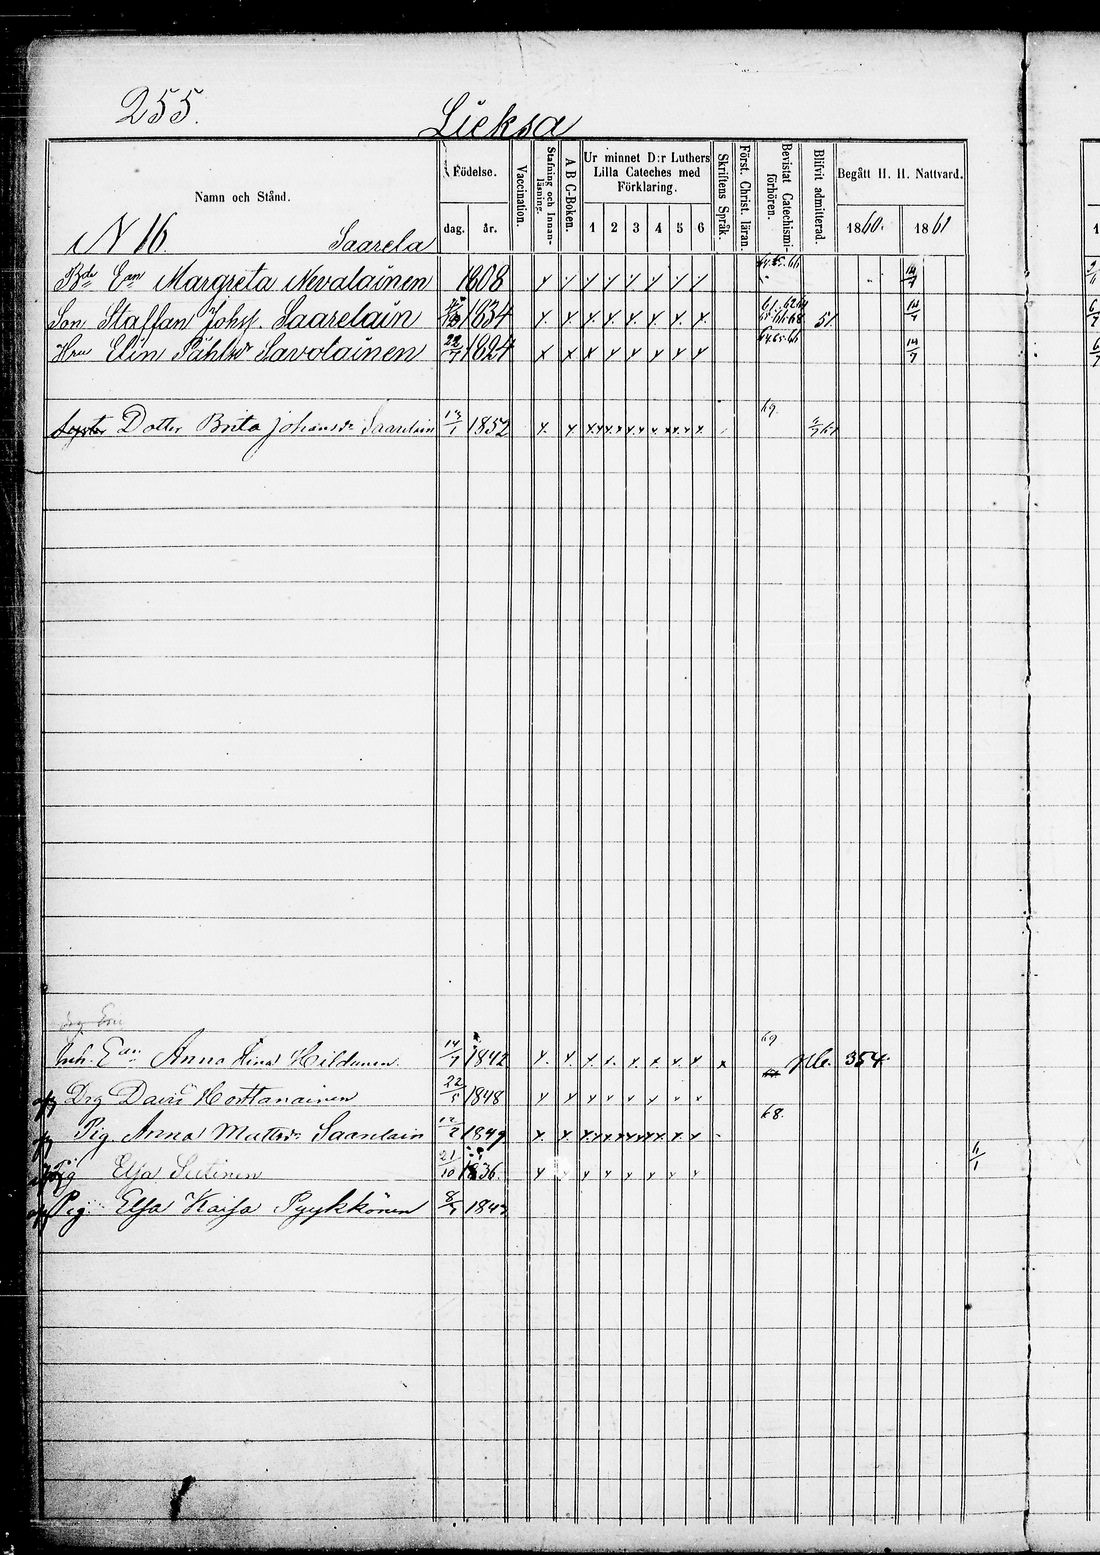 255.
Lieksa
Namn och Stånd.
Födelse.
dag. år.
Vaccination.
Stafning och Innanläsning.
A B C-Boken.
Ur minnet D:r Luthers Lilla Cateches med Förklaring.
1 2 3 4 5 6
Skriftens Språk.
Först. Christ. läran.
Bevistat Catechismiförhören.
Blifvit admitterad.
Begått H. H. Nattvard.
1860. 1861
N 16. Saarela
Bde Ean Margreta Nevalainen 1808 x x x x x x x x 14/7
Son Staffan Johsf. Saarelain 1834 x x x x x x x x 51. 14/7
Hru Elin Påhlsdr Savolainen 22/7 1824 x x x x x x x x 64.65.66 14/7
Dotter Brita Johansdr Saarelain 13/1 1852 x x x x x x x x 69.
Inh. Ean Anna Stina Hildunen. 14/7 1842 x x x x x x x x x 69 354.
Drg David Horttanainen 22/5 1848 x x x x x x x x
Pig Anna Mattsdr Saarelain 12/2 1849 x x x x x x x x 68.
Pig Elsa Sutinen 21/10 1836 x x x x x x x
Pig Elsa Kaisa Pyykkönen 8/4 1843